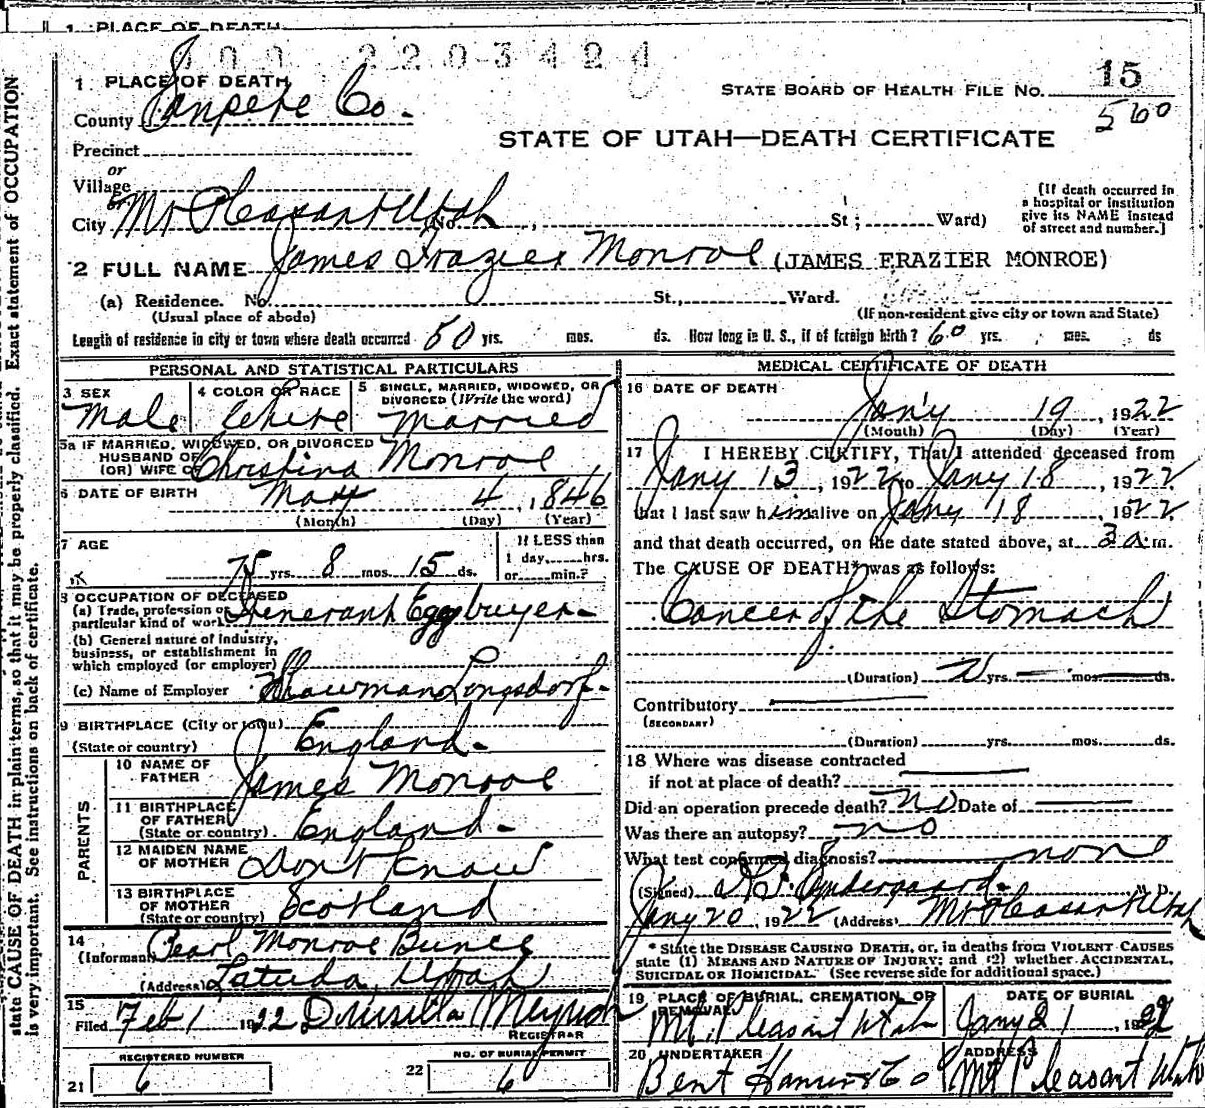 1 PLACE OF DEATH
000 2203424
1 PLACE OF DEATH
County Sanpete Co.
STATE BOARD OF HEALTH FILE NO. 15
560
STATE OF UTAH—DEATH CERTIFICATE
Precinct
or
Village
or
City Mt Pleasant Utah (No. , St; Ward)
[If death occurred in
a hospital or institution
give its NAME instead
of street and number.]
2 FULL NAME James Frazier Monroe (JAMES FRAZIER MONROE)
(a) Residence. No. St., Ward.
(Usual place of abode) (If non-resident give city or town and State)
Length of residence in city or town where death occurred 50 yrs. mos. ds. How long in U. S., if of foreign birth? 60 yrs. mos. ds
PERSONAL AND STATISTICAL PARTICULARS
3 SEX Male
4 COLOR OR RACE White
5 SINGLE, MARRIED, WIDOWED, OR
DIVORCED (Write the word)
Married
5a IF MARRIED, WIDOWED, OR DIVORCED
HUSBAND OF
(OR) WIFE OF Christina Monroe
6 DATE OF BIRTH May 4, 1846
(Month) (Day) (Year)
7 AGE 75 yrs. 8 mos. 15 ds.
If LESS than
1 day, hrs.
or min.?
8 OCCUPATION OF DECEASED
(a) Trade, profession or
particular kind of work Itenerant Egg buyer-
(b) General nature of industry,
business, or establishment in
which employed (or employer)
(c) Name of Employer Shawman Longsdorf-
9 BIRTHPLACE (City or town)
(State or country) England-
PARENTS
10 NAME OF
FATHER James Monroe
11 BIRTHPLACE
OF FATHER
(State or country) England-
12 MAIDEN NAME
OF MOTHER Don't Know
13 BIRTHPLACE
OF MOTHER
(State or country) Scotland
14
(Informant) Pearl Monroe Bunce
(Address) Latuda, Utah
15
Filed Feb 1 1922 Drusilla
REGISTRAR
REGISTERED NUMBER
21 6
NO. OF BURIAL PERMIT
22 6
MEDICAL CERTIFICATE OF DEATH
16 DATE OF DEATH
Jan'y 19, 1922
(Month) (Day) (Year)
17 I HEREBY CERTIFY, That I attended deceased from
Jany 13, 1922 to Jany 18, 1922
that I last saw him alive on Jany 18 1922
and that death occurred, on the date stated above, at 3 a.m.
The CAUSE OF DEATH* was as follows:
Cancer of the Stomach
(Duration) 2 yrs. mos. ds.
Contributory
(SECONDARY)
(Duration) yrs. mos. ds.
18 Where was disease contracted
if not at place of death?
Did an operation precede death? No Date of
Was there an autopsy? no
What test confirmed diagnosis? none
(Signed) M. D.
Jany 20, 1922 (Address) Mt Pleasant Utah
* State the DISEASE CAUSING DEATH, or, in deaths from VIOLENT CAUSES
state (1) MEANS AND NATURE OF INJURY; and (2) whether ACCIDENTAL,
SUICIDAL OR HOMICIDAL. (See reverse side for additional space.)
19 PLACE OF BURIAL, CREMATION, OR
REMOVAL
Mt. Pleasant Utah
DATE OF BURIAL
Jany 21, 1922
20 UNDERTAKER
Bent Hansen & Co
ADDRESS
Mt Pleasant Utah
state CAUSE OF DEATH in plain terms, so that it may be properly classified. Exact statement of OCCUPATION
is very important. See instructions on back of certificate.